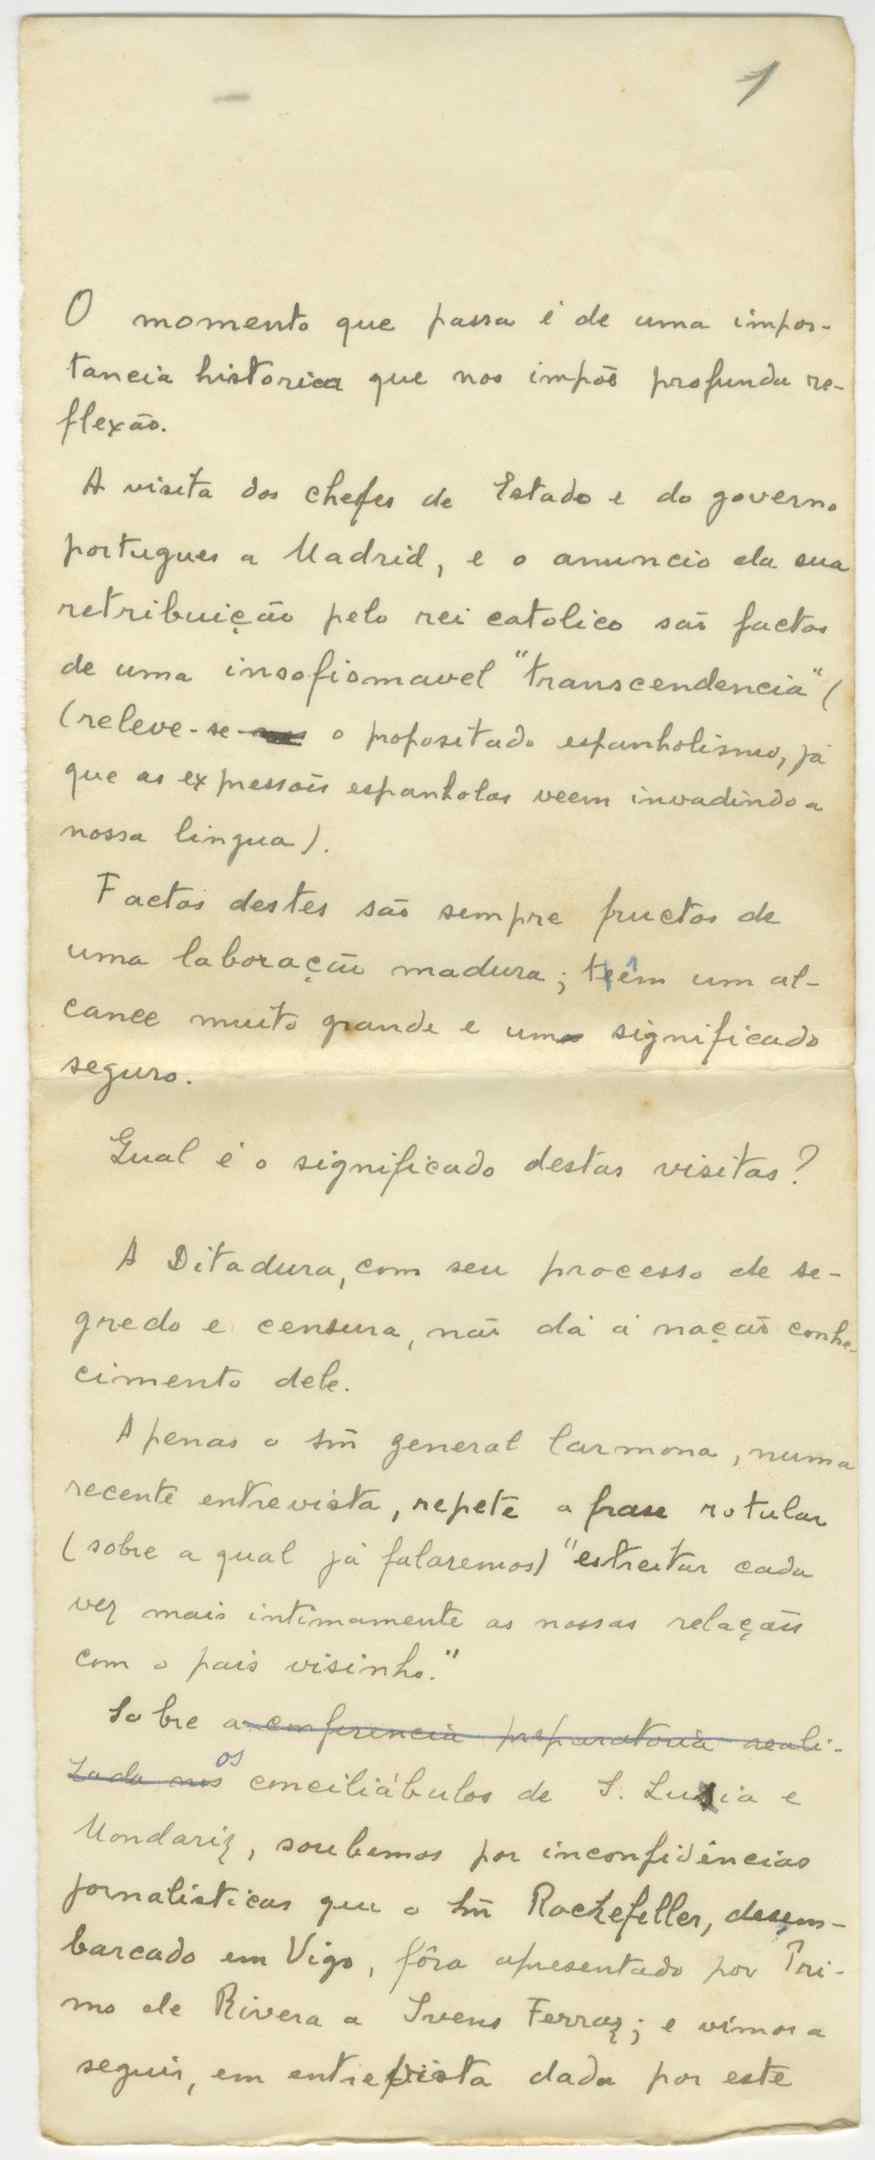 1
O momento que passa é de uma impor-
tancia historica que nos impõe profunda re-
flexão.
A visita dos chefes de Estado e do governo
portugues a Madrid, e o anuncio da sua
retribuição pelo rei catolico são factos
de uma insofismavel "transcendencia" (
(releve-se o propositado espanholismo, já
que as expressões espanholas veem invadindo a
nossa lingua).
Factos destes são sempre fructos de
uma laboração madura; teêm um al-
cance muito grande e um significado
seguro.
Qual é o significado destas visitas?
A Ditadura, com seu processo de se-
gredo e censura, não dá á nação conhe-
cimento dele.
Apenas o snr general Carmona, numa
recente entrevista, repete a frase rotular
(sobre a qual já falaremos) "estreitar cada
vez mais intimamente as nossas relações
com o pais visinho."
Sobre a conferencia preparatoria reali-
zada nos os conciliábulos de S. Lusia e
Mondariz, soubemos por inconfidências
jornalisticas que o snr Rockefeller, desem-
barcado em Vigo, fôra apresentado por Pri-
mo de Rivera a Ivens Ferraz; e vimos a
seguir, em entrevista dada por este